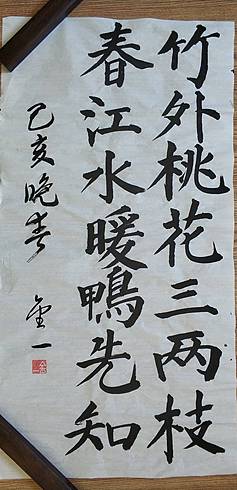 竹外桃花三两枝
春江水暖鴨先知
己亥晚春
金一